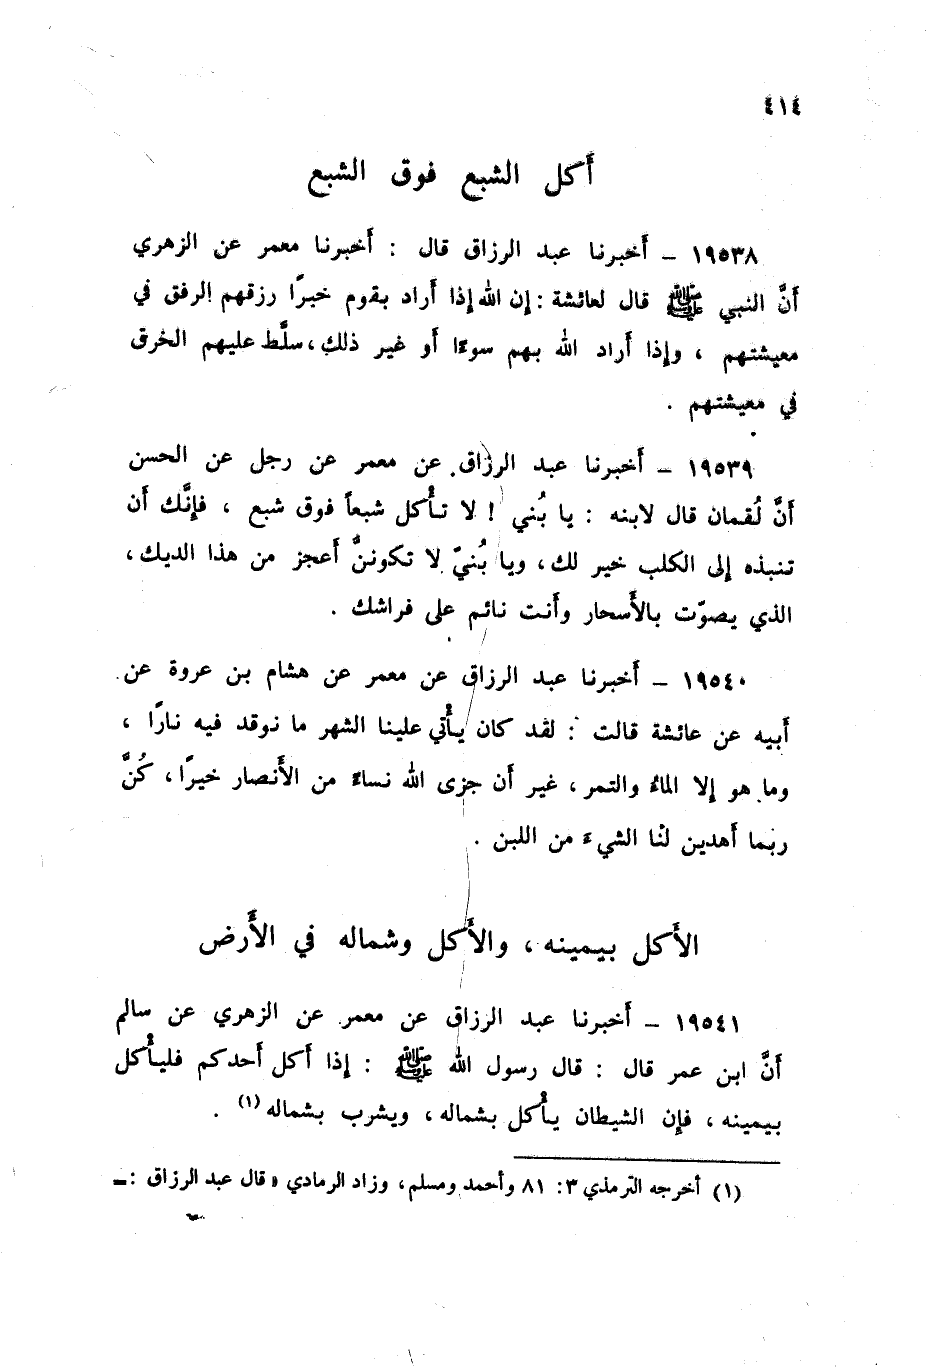 ٤١٤
أكل الشبع فوق الشبع
١٩٥٣٨ – أخبرنا عبد الرزاق قال : أخبرنا معمر عن الزهري
أنَّ النبي ﷺ قال لعائشة : إن الله إذا أراد بقوم خيرًا رزقهم الرفق في
معيشتهم ، وإذا أراد الله بهم سوءًا أو غير ذلك، سلَّط عليهم الخرق
في معيشتهم .
١٩٥٣٩ – أخبرنا عبد الرزاق عن معمر عن رجل عن الحسن
أنَّ لُقمان قال لابنه : يا بُني ! لا تأكل شبعاً فوق شبع ، فإنَّك أن
تنبذه إلى الكلب خير لك، ويا بُنيّ لا تكوننَّ أعجز من هذا الديك،
الذي يصوّت بالأسحار وأنت نائم على فراشك .
١٩٥٤٠ – أخبرنا عبد الرزاق عن معمر عن هشام بن عروة عن
أبيه عن عائشة قالت : لقد كان يأتي علينا الشهر ما نوقد فيه نارًا ،
وما هو إلا الماءُ والتمر، غير أن جزى الله نساءً من الأنصار خيرًا، كُنَّ
ربما أهدين لنا الشيءَ من اللبن .
الأكل بيمينه ، والأكل وشماله في الأرض
١٩٥٤١ – أخبرنا عبد الرزاق عن معمر عن الزهري عن سالم
أنَّ ابن عمر قال : قال رسول الله ﷺ : إذا أكل أحدكم فليأكل
بيمينه ، فإن الشيطان يأكل بشماله، ويشرب بشماله (١) .
(١) أخرجه الترمذي ٣: ٨١ وأحمد ومسلم، وزاد الرمادي « قال عبد الرزاق :ـ